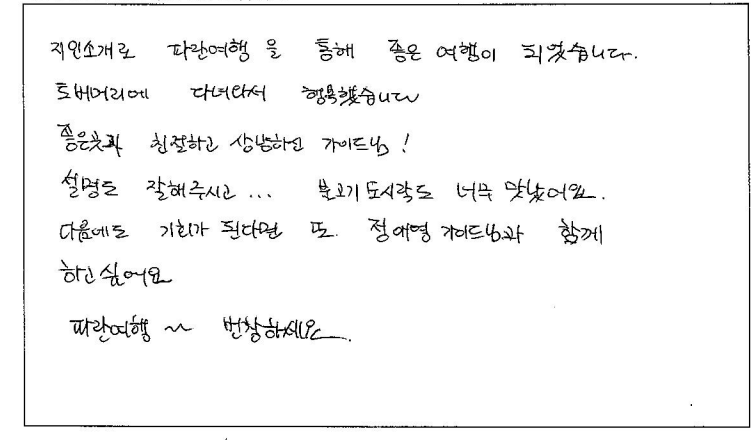 지인소개로 파란여행을 통해 좋은 여행이 되었습니다.
토버머리에 다녀와서 행복했습니다
좋은곳과 친절하고 상냥하신 가이드님!
설명도 잘해주시고... 불고기 도시락도 너무 맛났어요.
다음에도 기회가 된다면 또. 정애영 가이드님과 함께
하고싶어요
파란여행 ~ 번창하세요